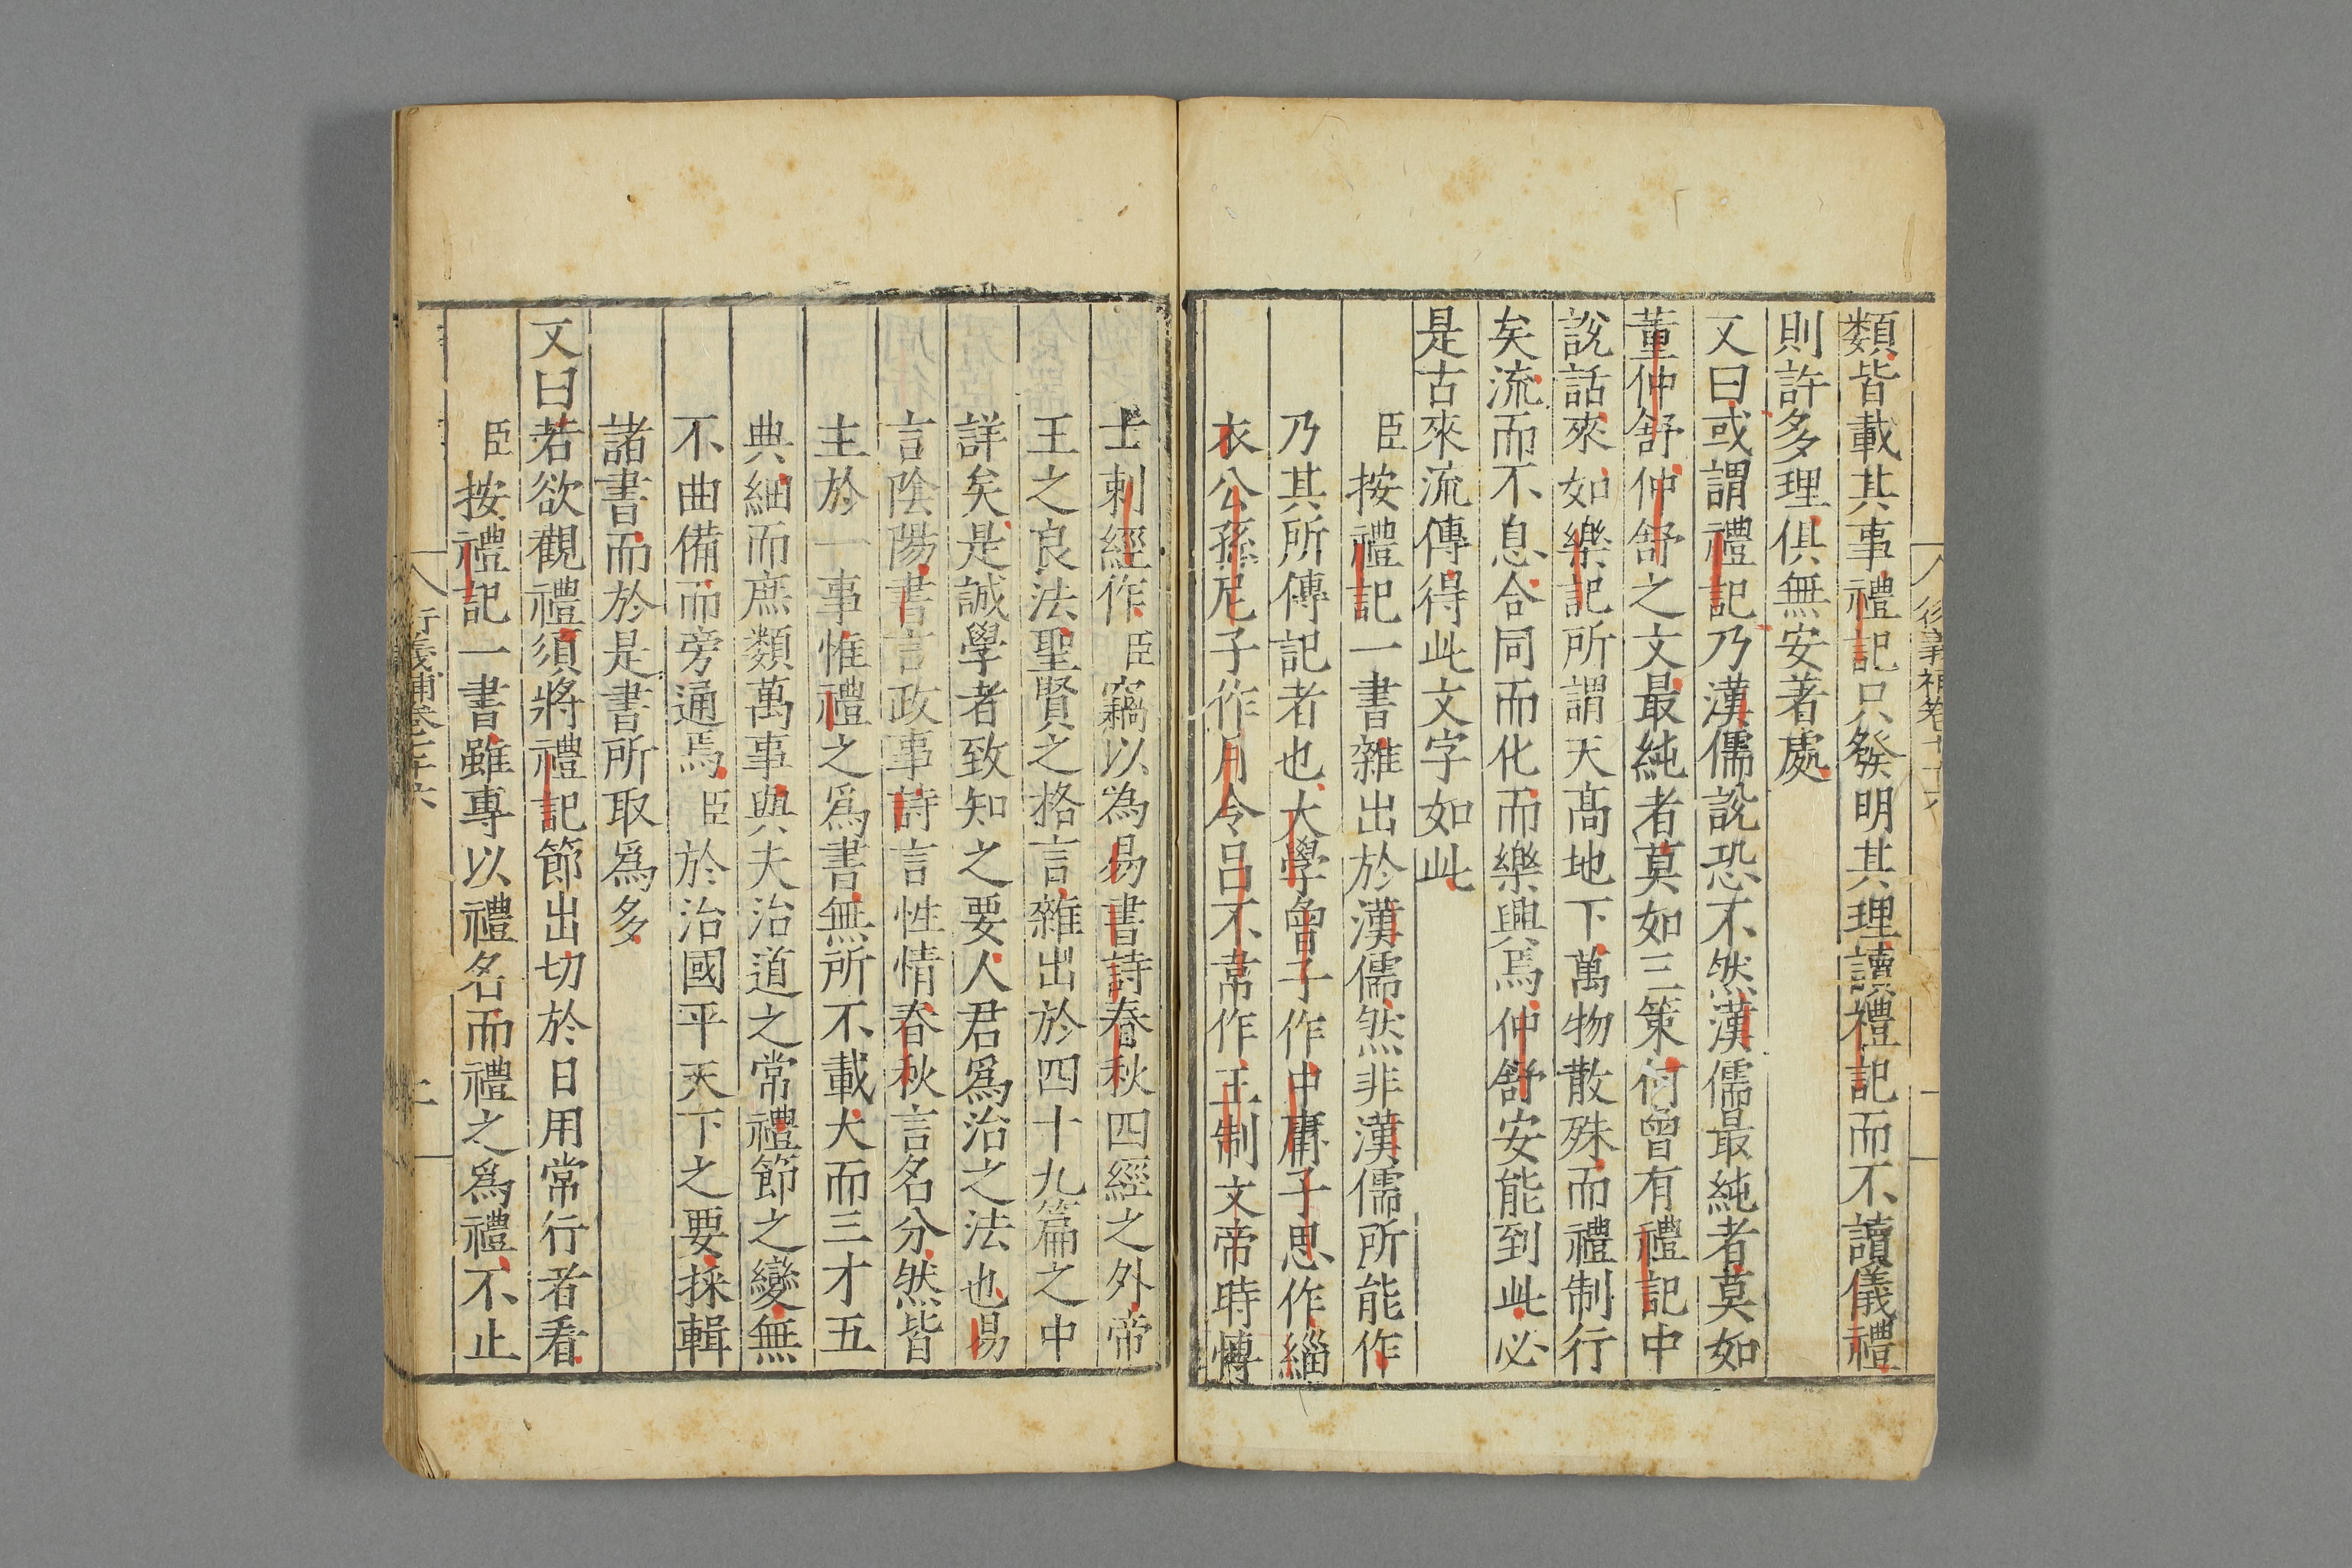 類皆載其事禮記只發明其理讀禮記而不讀儀禮
則許多理俱無安著處
又曰或謂禮記乃漢儒說恐不然漢儒最純者莫如
董仲舒仲舒之文最純者莫如三策何曾有禮記中
說話來如樂記所謂天高地下萬物散殊而禮制行
矣流而不息合同而化而樂興焉仲舒安能到此必
是古來流傳得此文字如此
臣按禮記一書雜出於漢儒然非漢儒所能作
乃其所傳記者也大學曾子作中庸子思作緇
衣公孫尼子作月令呂不韋作王制文帝時博
士刺經作臣竊以為易書詩春秋四經之外帝
王之良法聖賢之格言雜出於四十九篇之中
詳矣是誠學者致知之要人君爲治之法也易
言陰陽書言政事詩言性情春秋言名分然皆
主於一事惟禮之爲書無所不載大而三才五
典細而庶類萬事與夫治道之常禮節之變無
不曲備而旁通焉臣於治國平天下之要採輯
諸書而於是書所取爲多
又曰若欲觀禮須將禮記節出切於日用常行者看
臣按禮記一書雖專以禮名而禮之爲禮不止